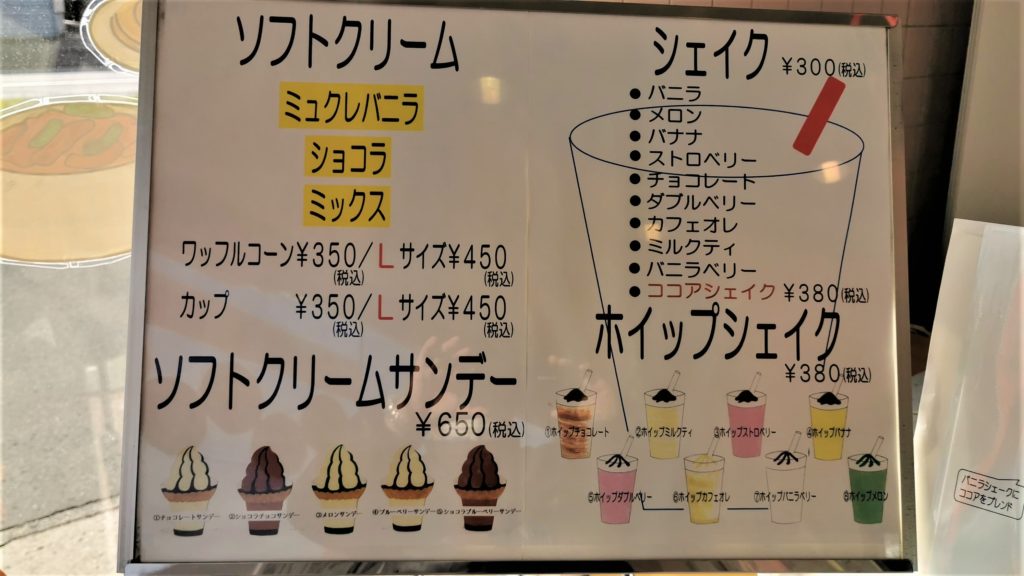 ソフトクリーム
ミュクレバニラ
ショコラ
ミックス
ワッフルコーン¥350/Lサイズ¥450
(税込) (税込)
カップ ¥350/Lサイズ¥450
(税込) (税込)
ソフトクリームサンデー
¥650(税込)
①チョコレートサンデー
②ショコラチョコサンデー
③メロンサンデー
④ブルーベリーサンデー
⑤ショコラブルーベリーサンデー
シェイク ¥300(税込)
●バニラ
●メロン
●バナナ
●ストロベリー
●チョコレート
●ダブルベリー
●カフェオレ
●ミルクティ
●バニラベリー
●ココアシェイク ¥380(税込)
ホイップシェイク
¥380(税込)
①ホイップチョコレート
②ホイップミルクティ
③ホイップストロベリー
④ホイップバナナ
⑤ホイップダブルベリー
⑥ホイップカフェオレ
⑦ホイップバニラベリー
⑧ホイップメロン
バニラシェークに
ココアをブレンド